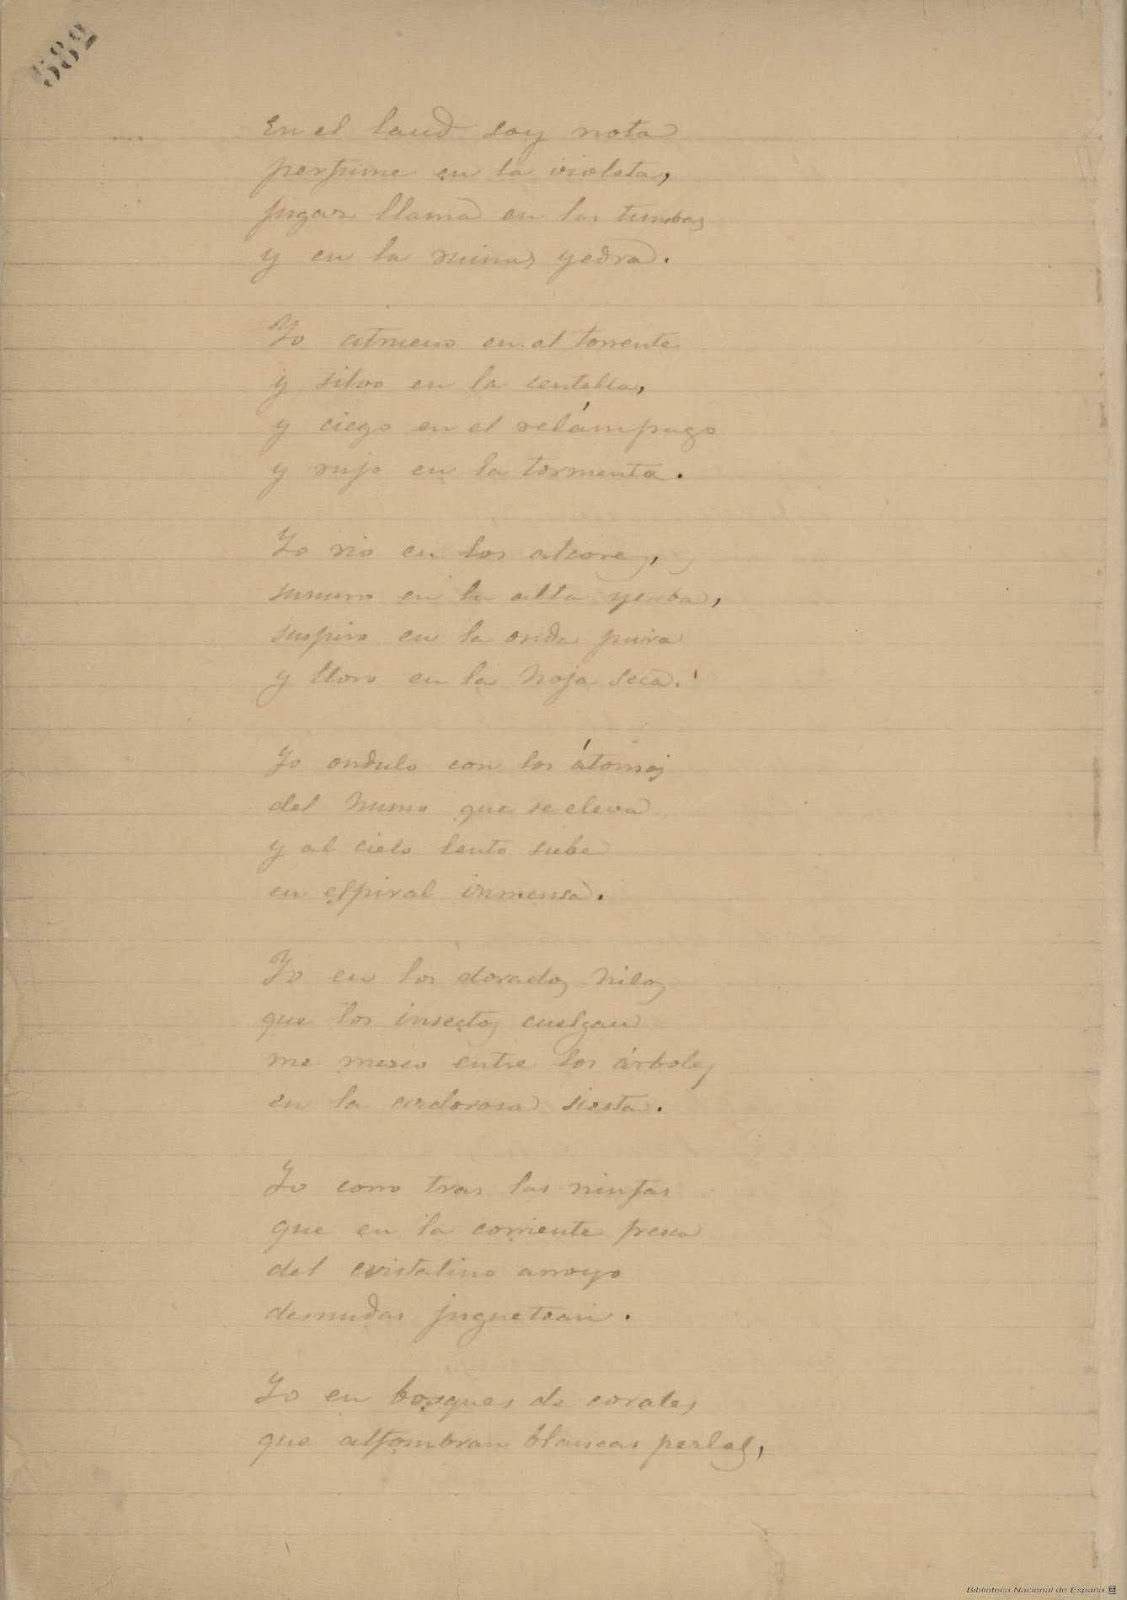 582
En el laud soy nota
perfume en la violeta,
fugaz llama en las tumbas
y en la ruinas yedra.
Yo atrueno en el torrente
y silbo en la centella,
y ciego en el relámpago
y rujo en la tormenta.
Yo rio en los alcores,
susurro en la alta yerba,
suspiro en la onda pura
y lloro en la hoja seca.
Yo ondulo con los átomos
del humo que se eleva
y al cielo lento sube
en espiral inmensa.
Yo en los dorados hilos
que los insectos cuelgan
me mezco entre los árboles
en la ardorosa siesta.
Yo corro tras las ninfas
que en la corriente fresca
del cristalino arroyo
desnudas juguetean.
Yo en bosques de corales
que alfombran blancas perlas,
Biblioteca Nacional de España